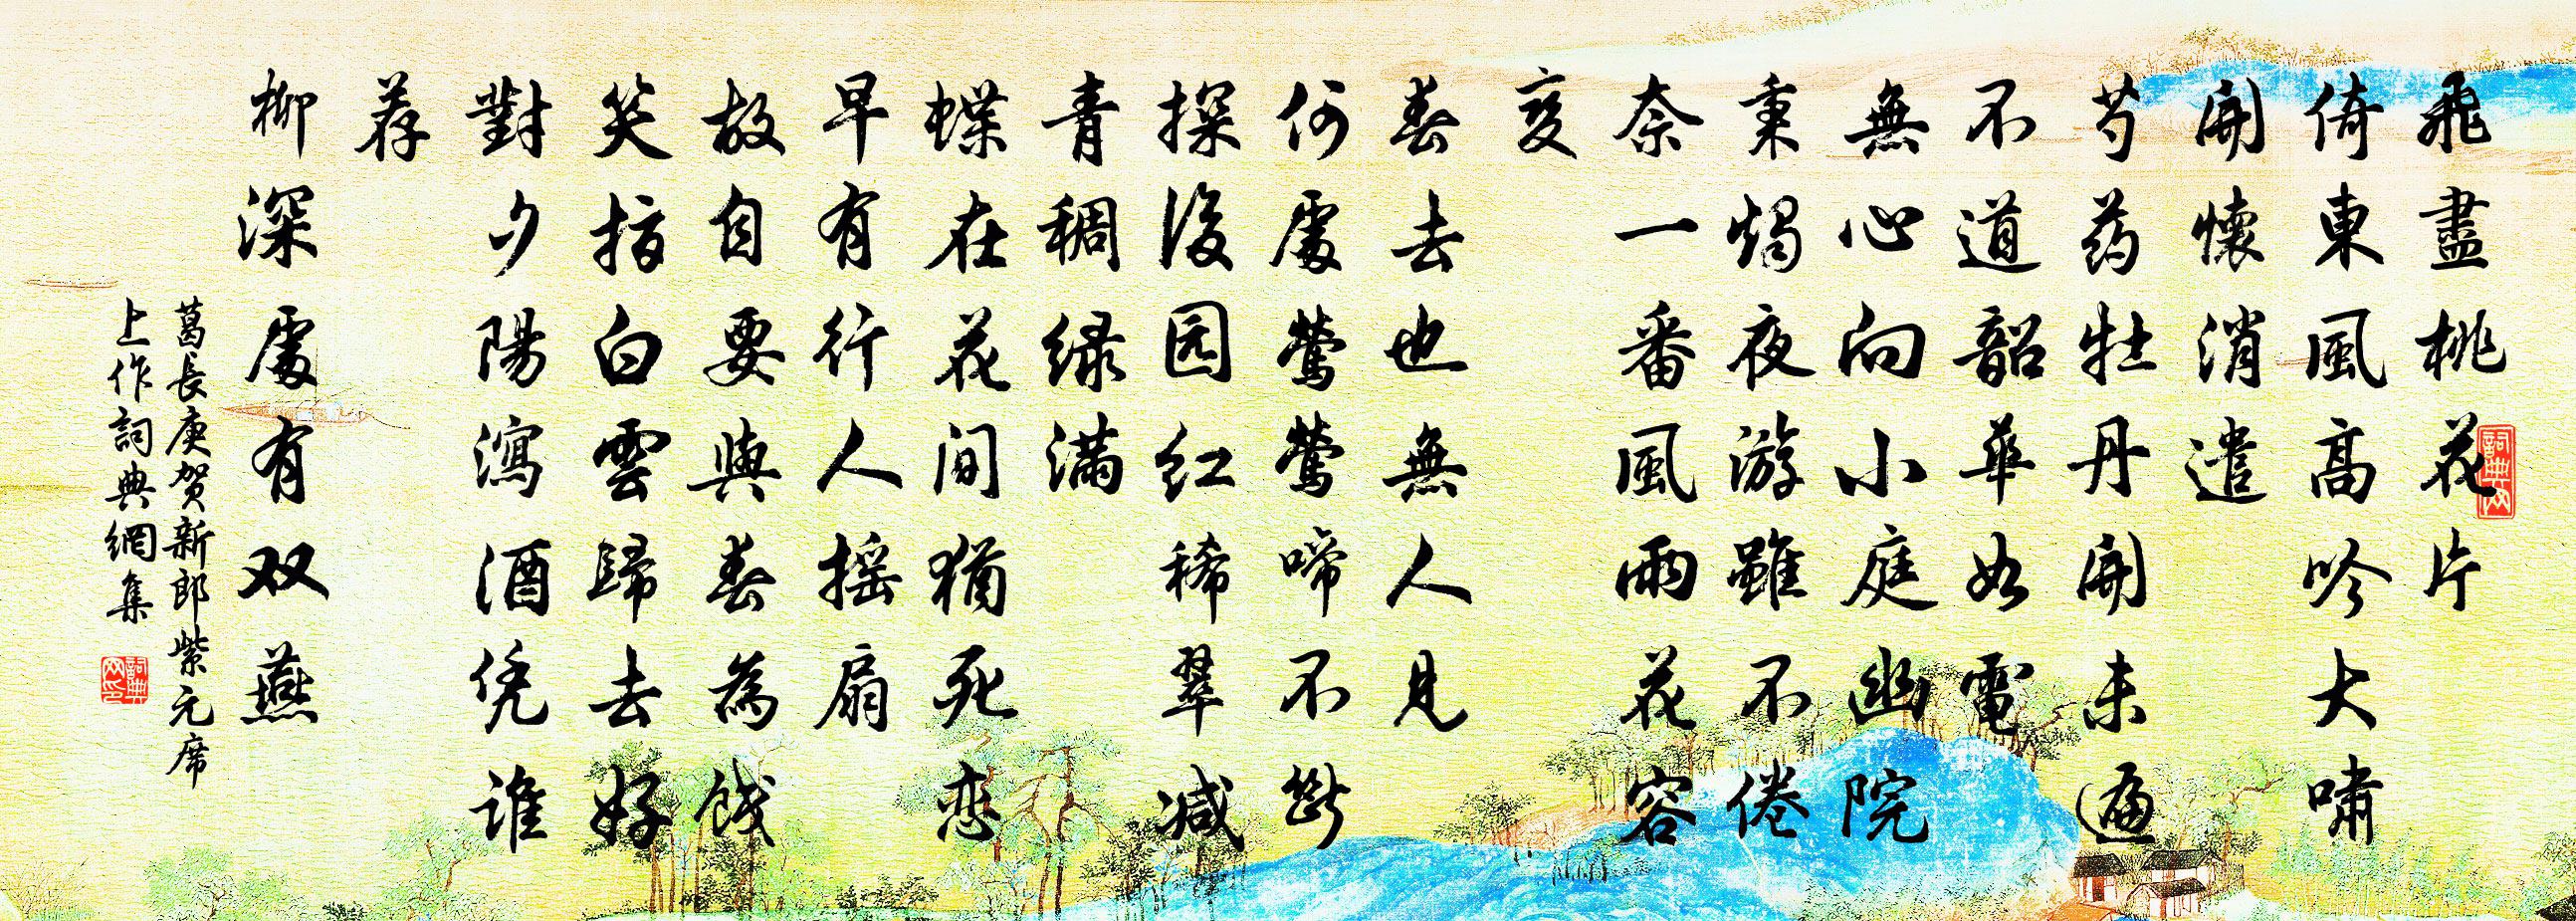 飛盡桃花片
倚東風高吟大嘯
開懷消遣
芍药牡丹開未遍
不道韶華如電
無心向小庭幽院
秉燭夜游雖不倦
奈一番風雨花容
变
春去也無人見
何處鶯鶯啼不斷
探後园红稀翠减
青稠绿满
蝶在花间犹死恋
早有行人摇扇
故自要與春為餞
笑指白雲歸去好
對夕陽瀉酒凭谁
荐
柳深處有双燕
葛長庚贺新郎紫元席
上作詞典網集
詞典网
詞典网印